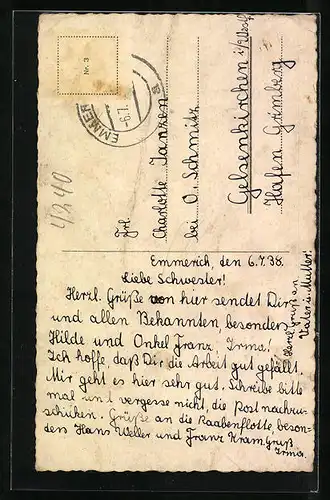 Nr. 3
EMMER
-6.7.
a
4240
Frl.
Charlotte Janzen
bei O. Schmitz
Gelsenkirchen i/Westf.
Hafen Grimberg
Emmerich, den 6.7.38.
Liebe Schwester!
Herzl. Grüße von hier sendet Dir
und allen Bekannten, besonders
Hilde und Onkel Franz, Irma!
Ich hoffe, daß Dir die Arbeit gut gefällt.
Mir geht es hier sehr gut. Schreibe bitte
mal und vergesse nicht, die Post nachzu-
schicken. Grüße an die Raabenflotte, beson-
ders Hans Weller und Franz Kram. Gruß
Irma.
Herzl. Grüße an
Vater u. Mutter!